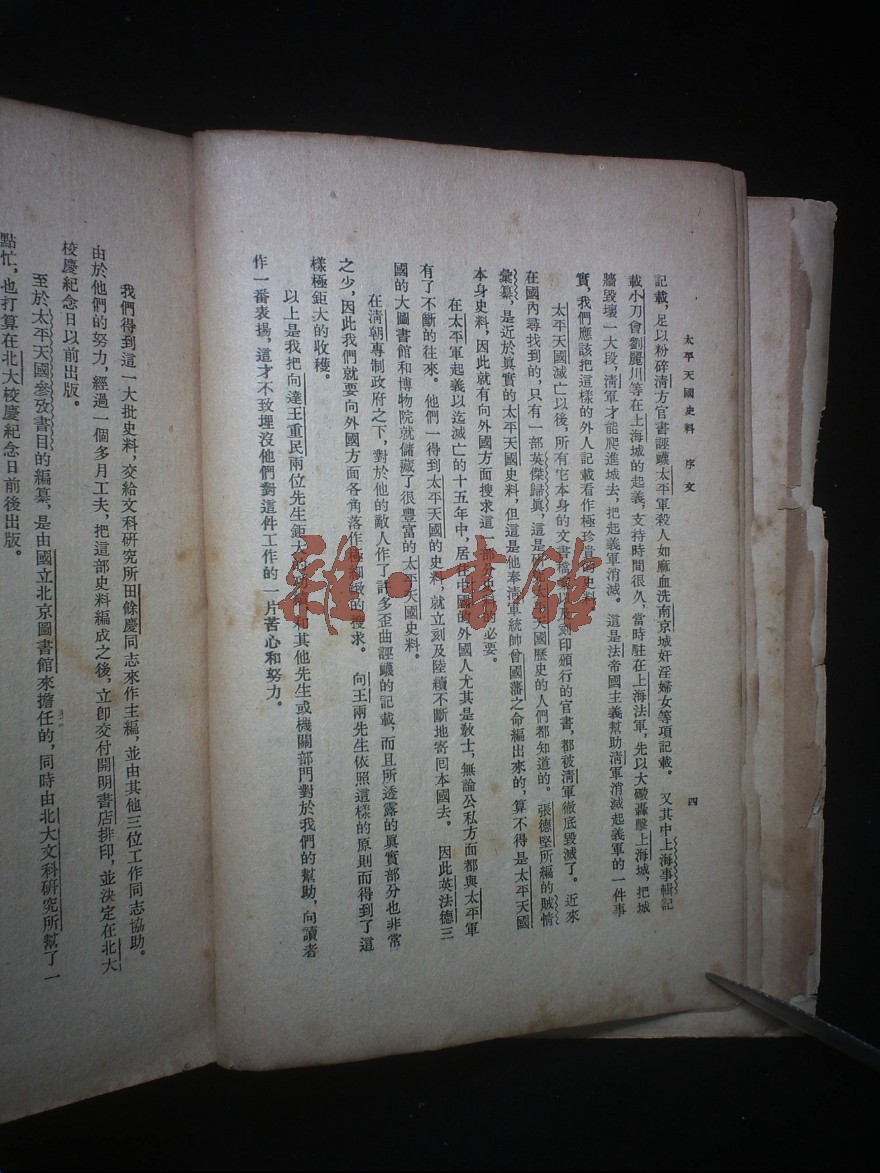 太平天國史料 序文
四
記載，足以粉碎清方官書誣衊太平軍殺人如麻血洗南京城奸淫婦女等項記載。又其中上海事輯記
載小刀會劉麗川等在上海城的起義，支持時間很久，當時駐在上海法軍，先以大礮轟擊上海城，把城
牆毀壞一大段，清軍才能爬進城去，把起義軍消滅。這是法帝國主義幫助清軍消滅起義軍的一件事
實，我們應該把這樣的外人記載看作極珍貴的史料。
太平天國滅亡以後，所有它本身的文書檔案及刻印頒行的官書，都被清軍徹底毀滅了。近來
在國內尋找到的，只有一部英傑歸真，這是研究太平天國歷史的人們都知道的。張德堅所編的賊情
彙纂，是近於眞實的太平天國史料，但這是他奉淸軍統帥曾國藩之命編出來的，算不得是太平天國
本身史料，因此就有向外國方面搜求這一部分史料的必要。
在太平軍起義以迄滅亡的十五年中，居住中國的外國人尤其是敎士，無論公私方面都與太平軍
有了不斷的往來。他們一得到太平天國的史料，就立刻及陸續不斷地寄回本國去。因此英法德三
國的大圖書館和博物院就儲藏了很豐富的太平天國史料。
在淸朝專制政府之下，對於他的敵人作了許多歪曲誣衊的記載，而且所透露的眞實部分也非常
之少，因此我們就要向外國方面各角落作極細敏的搜求。向王兩先生依照這樣的原則而得到了這
樣極鉅大的收穫。
以上是我把向達王重民兩位先生鉅大的和其他先生或機關部門對於我們的幫助，向讀者
作一番表揚，這才不致埋沒他們對這件工作的一片苦心和努力。
我們得到這一大批史料，交給文科研究所田餘慶同志來作主編，並由其他三位工作同志協助。
由於他們的努力，經過一個多月工夫，把這部史料編成之後，立卽交付開明書店排印，並決定在北大
校慶紀念日以前出版。
至於太平天國參攷書目的編纂，是由國立北京圖書館來擔任的，同時由北大文科研究所幫了一
點忙，也打算在北大校慶紀念日前後出版。
雜·書館